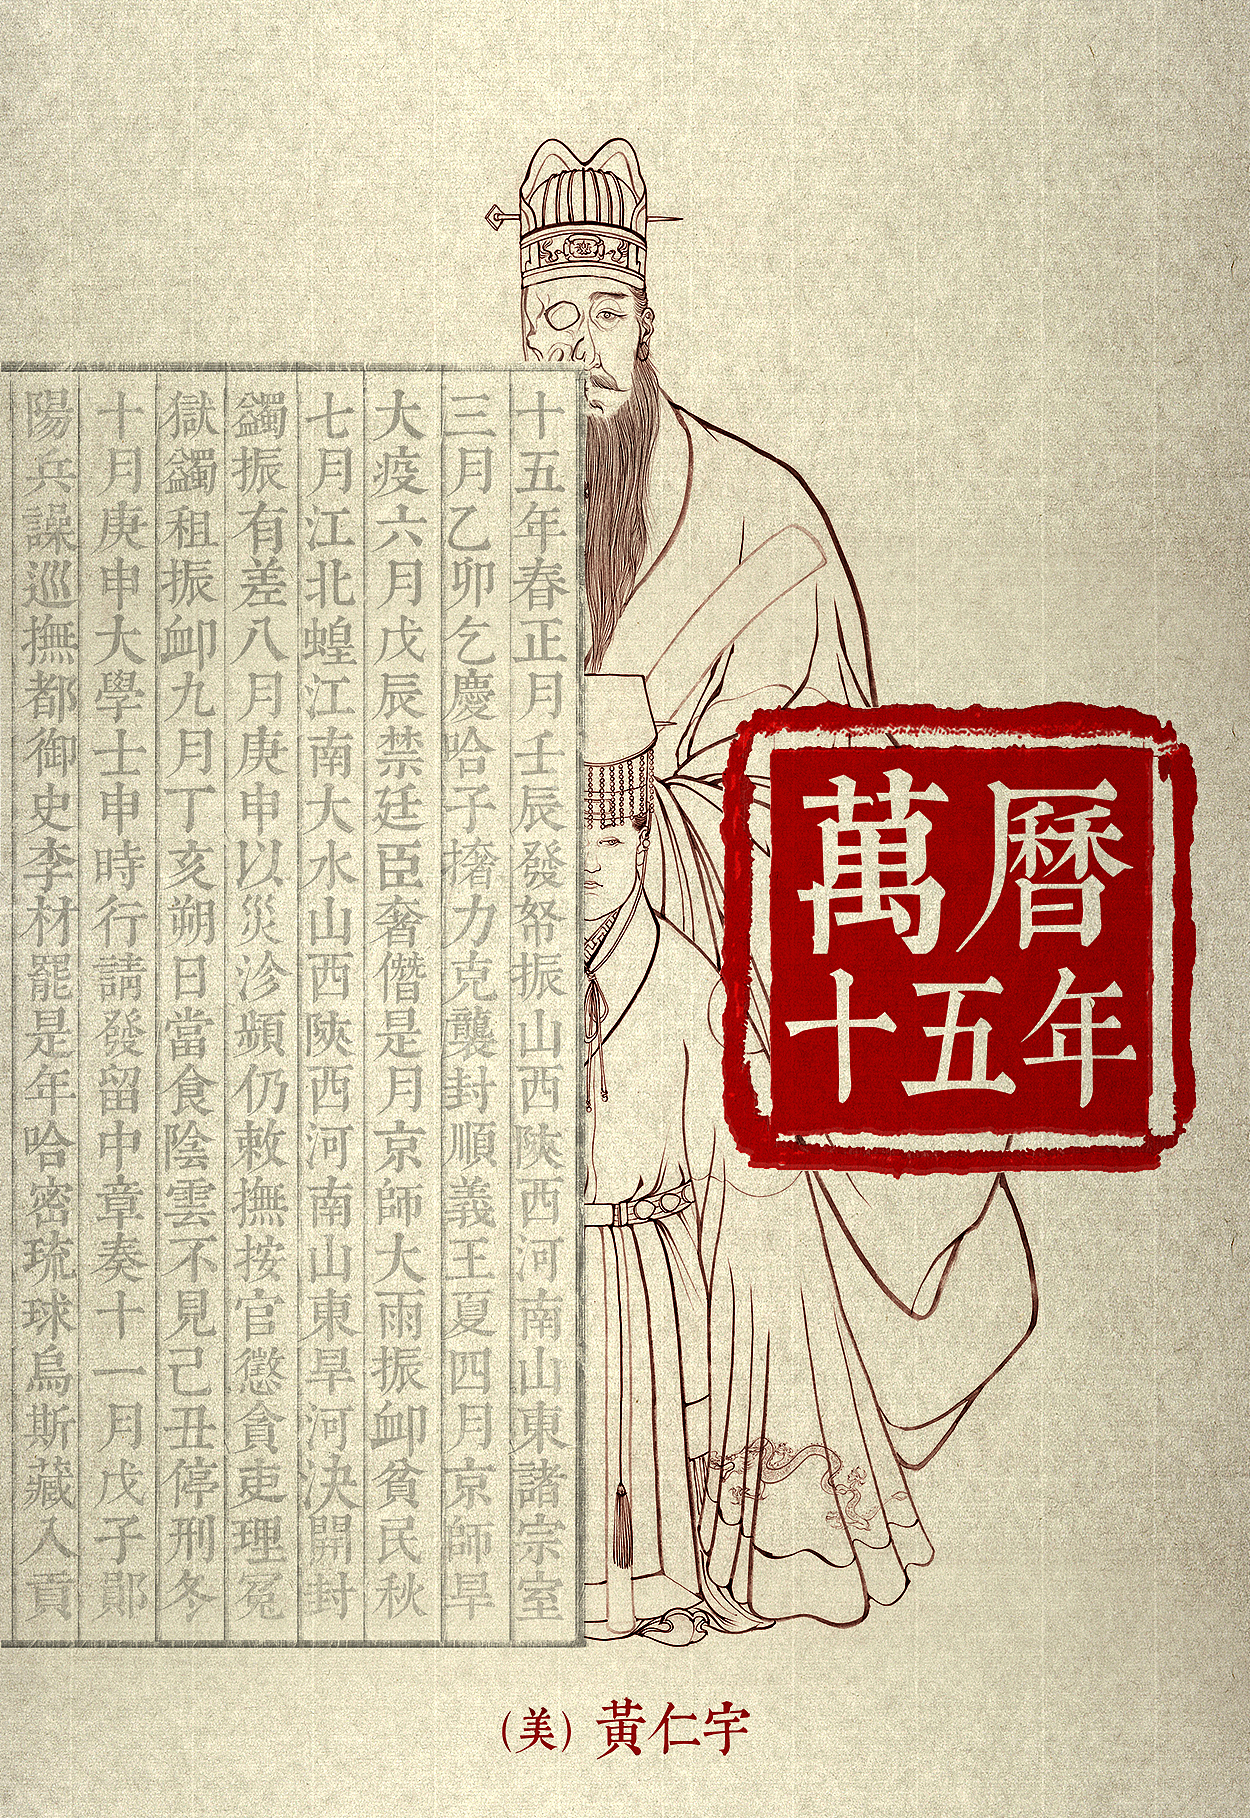 十五年春正月壬辰發帑振山西陝西河南山東諸宗室
三月乙卯乞慶哈子撦力克襲封順義王夏四月京師旱
大疫六月戊辰禁廷臣奢僭是月京師大雨振卹貧民秋
七月江北蝗江南大水山西陝西河南山東旱河決開封
蠲振有差八月庚申以災沴頻仍敕撫按官懲貪吏理冤
獄蠲租振卹九月丁亥朔日當食陰雲不見己丑停刑冬
十月庚申大學士申時行請發留中章奏十一月戊子鄖
陽兵譟巡撫都御史李材罷是年哈密琉球烏斯藏入貢
萬曆
十五年
(美) 黃仁宇